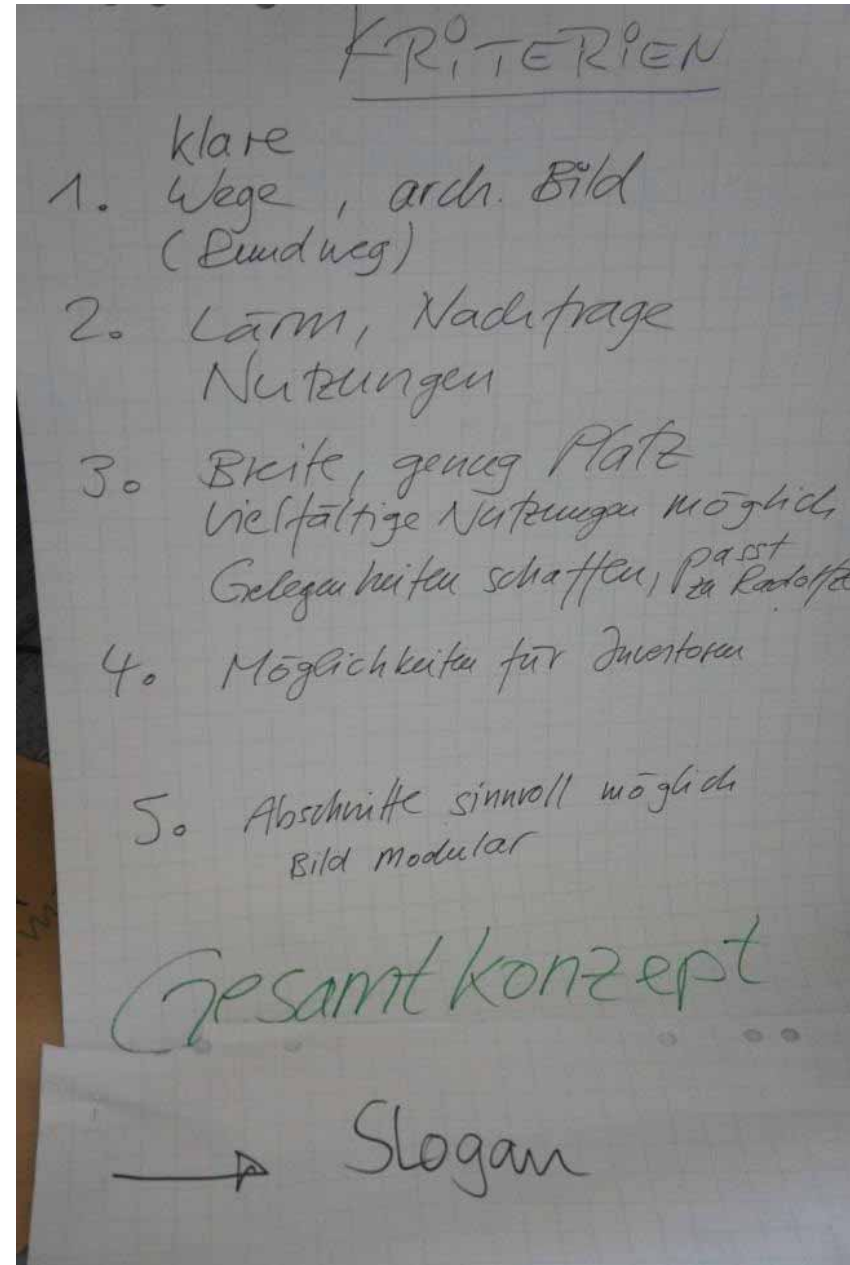 KRITERIEN
klare
1. Wege, arch. Bild
(Rundweg)
2. Lärm, Nachfrage
Nutzungen
3. Breite, genug Platz
vielfältige Nutzungen möglich
Gelegenheiten schaffen, passt
zu Radolfze
4. Möglichkeiten für Investoren
5. Abschnitte sinnvoll möglich
Bild Modular
Gesamtkonzept
→ Slogan